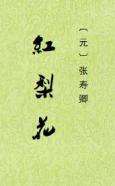 〔元〕张寿卿
紅梨花